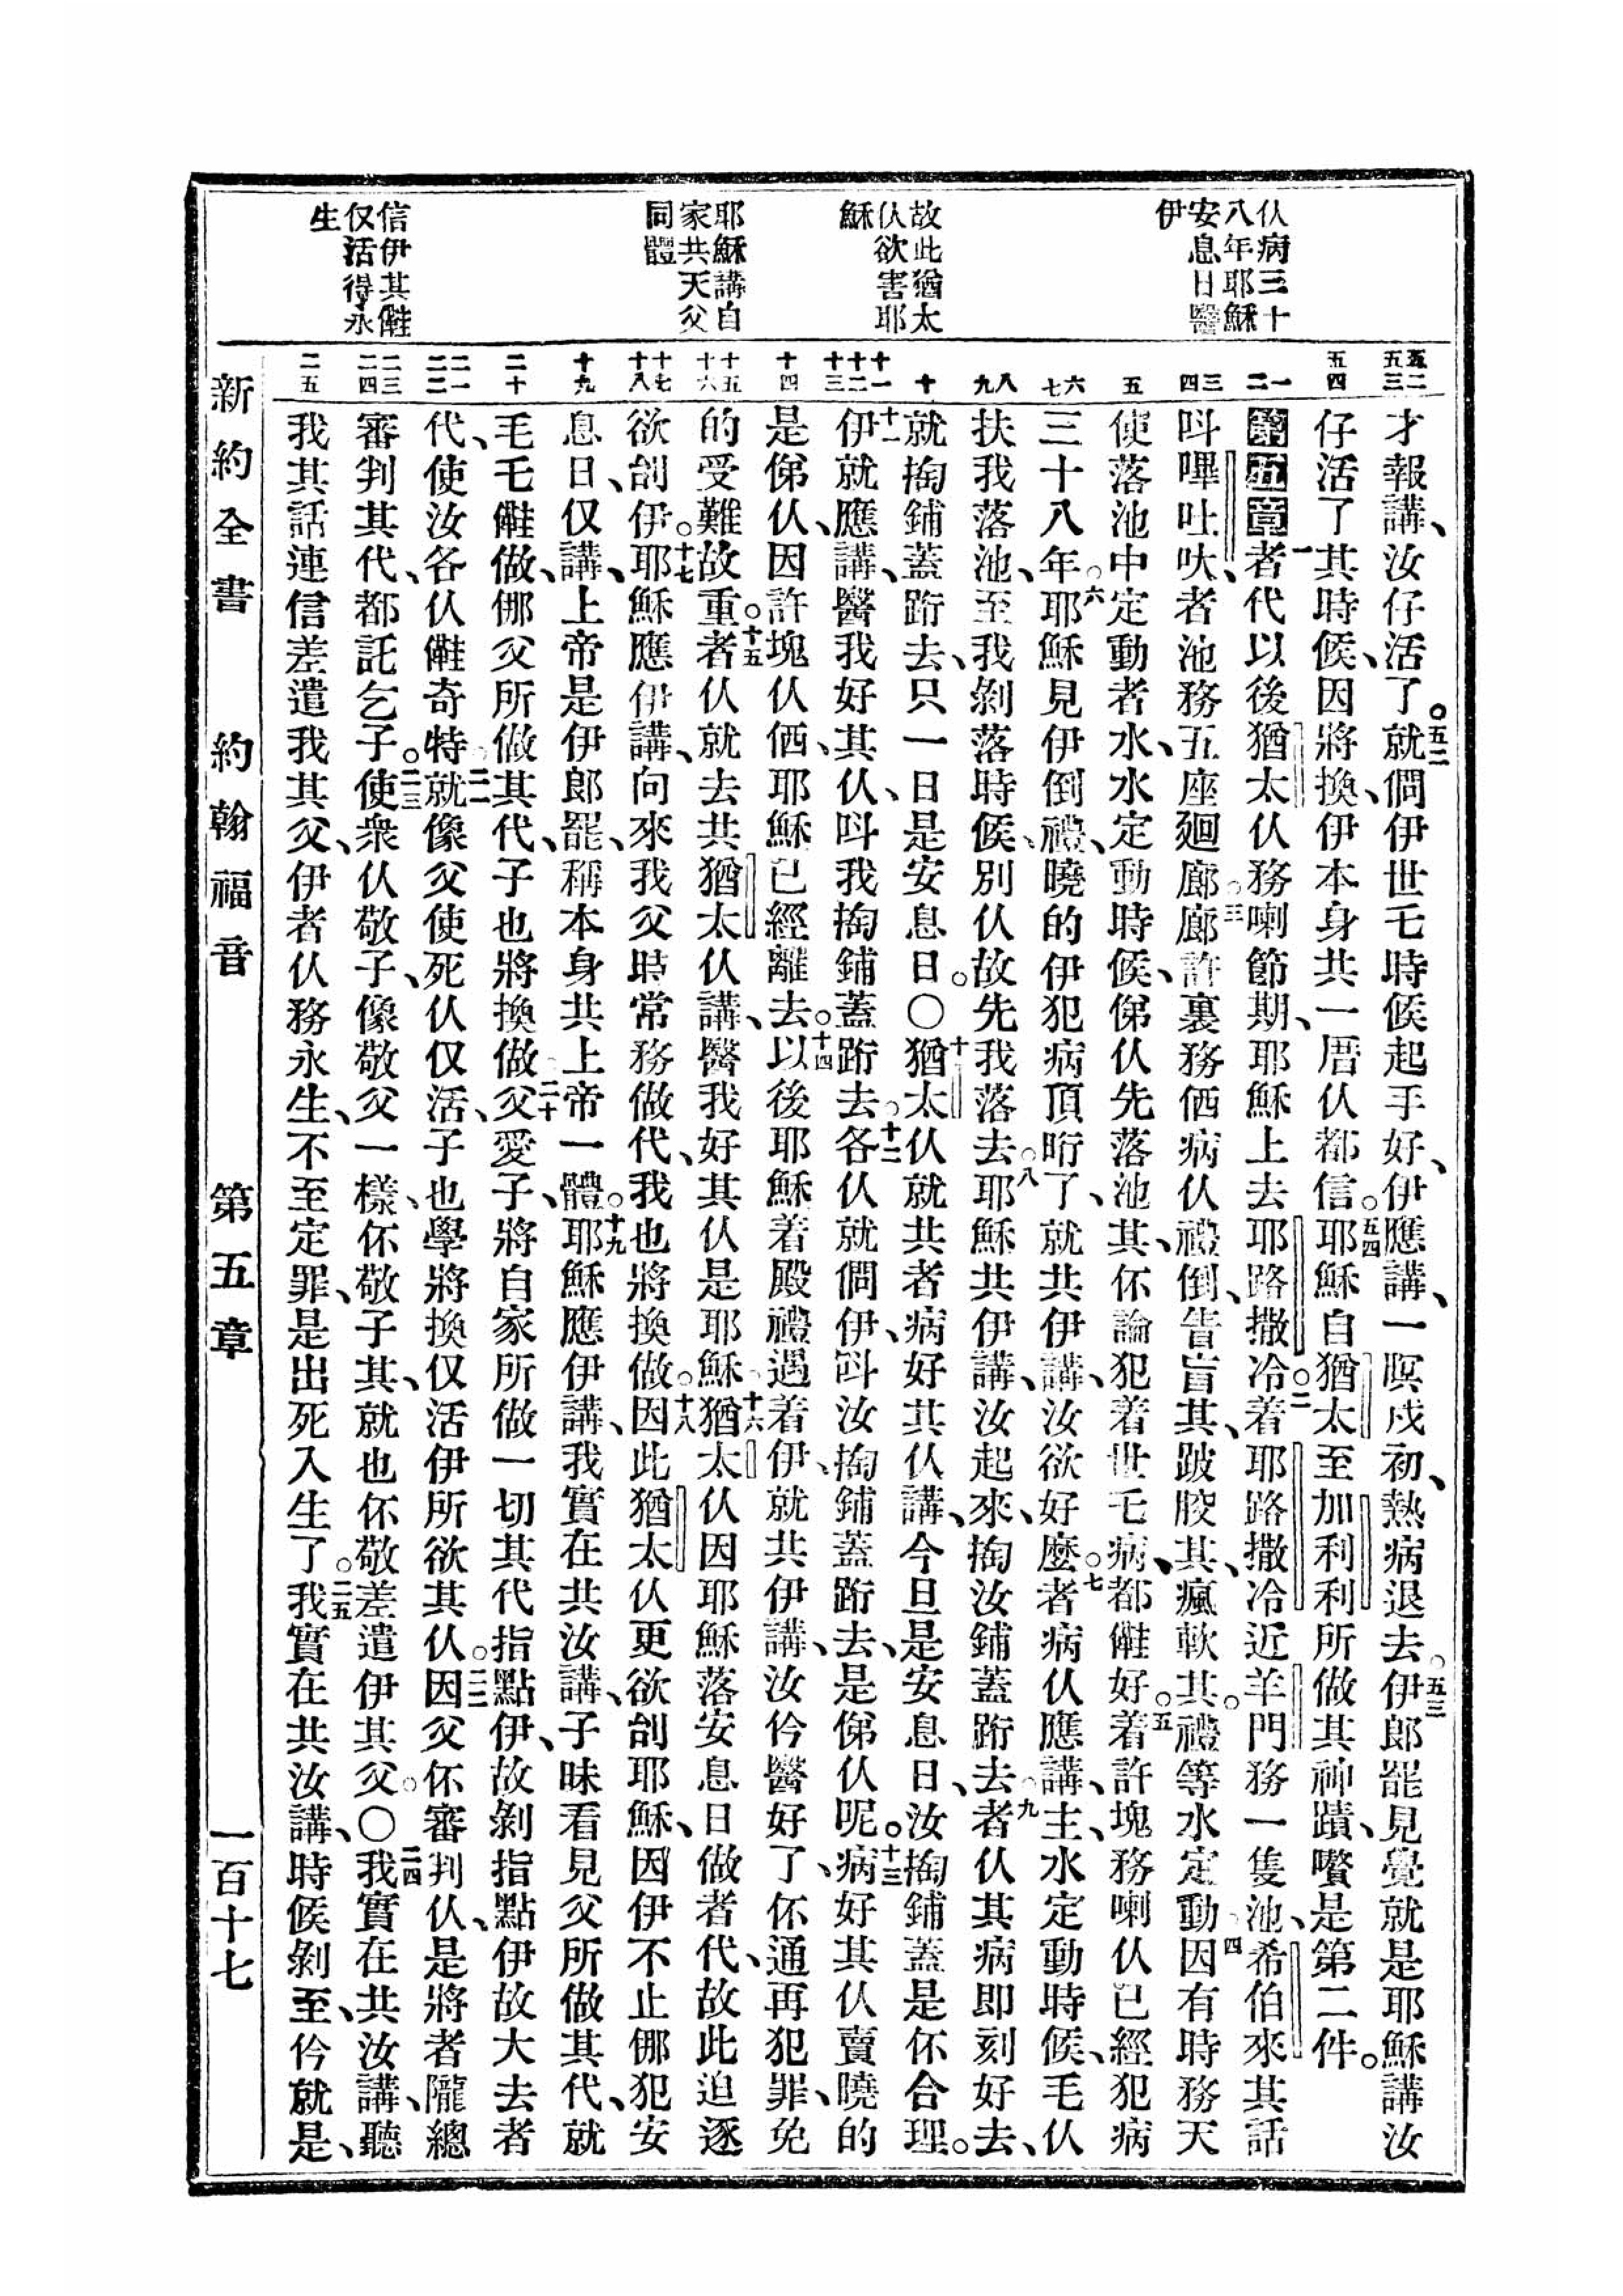 仈病三十
八年耶穌
安息日醫
伊
故此猶太
仈欲害耶
穌
耶穌講自
家共天父
同體
信伊其𠆧
仅活得永
生
五二
五三
五四
一
二
三
四
五
六
七
八
九
十
十一
十二
十三
十四
十五
十六
十七
十八
十九
二十
二一
二二
二三
二四
二五
才報講、汝仔活了。五二就僴伊世乇時候起手好、伊應講、一暝戍初、熱病退去。五三伊郎罷見覺就是耶穌講汝
仔活了其時候、因將換、伊本身共一厝仈都信。五四耶穌自猶太至加利利所做其神蹟、嚽是第二件。
第五章一者代以後猶太仈務喇節期、耶穌上去耶路撒冷。二着耶路撒冷近羊門務一隻池、希伯來其話
呌嗶吐𠯈、者池務五座廻廊。三廊許裏務𠇍病仈禮倒、眚盲其、跛腔其、瘋軟其。禮等水定動、四因有時務天
使落池中定動者水、水定動時候、俤仈先落池其、伓論犯着世乇病、都𠆧好。五着許塊務喇仈已經犯病
三十八年。六耶穌見伊倒禮、曉的伊犯病頂𣍐了、就共伊講、汝欲好麼。七者病仈應講、主、水定動時候、毛仈
扶我落池、至我剝落時候、別仈故先我落去。八耶穌共伊講、汝起來、掏汝鋪蓋跴去。九者仈其病即刻好去、
就掏鋪蓋跴去、只一日是安息日。〇十猶太仈就共者病好其仈講、今旦是安息日、汝掏鋪蓋是伓合理。
十一伊就應講、醫我好其仈、呌我掏鋪蓋跴去。十二各仈就僴伊、呌汝掏鋪蓋跴去、是俤仈呢。十三病好其仈賣曉的
是俤仈、因許塊仈𠇍、耶穌已經離去。十四以後耶穌着殿禮遇着伊、就共伊講、汝仱醫好了、伓通再犯罪、免
的受難故重。十五者仈就去共猶太仈講、醫我好其仈是耶穌。十六猶太仈因耶穌落安息日做者代、故此迫逐
欲刣伊。十七耶穌應伊講、向來我父時常務做代、我也將換做。十八因此猶太仈更欲刣耶穌、因伊不止㑚犯安
息日、仅講、上帝是伊郎罷、稱本身共上帝一體。十九耶穌應伊講、我實在共汝講、子昧看見父所做其代、就
毛乇𠆧做、㑚父所做其代、子也將換做。二十父愛子、將自家所做一切其代指點伊、故剝指點伊故大去者
代、使汝各仈𠆧奇特。二一就像父使死仈仅活、子也學將換仅活伊所欲其仈。二二因父伓審判仈、是將者隴總
審判其代、都託乞子。二三使衆仈敬子、像敬父一樣、伓敬子其、就也伓敬差遣伊其父。〇二四我實在共汝講、聽
我其話連信差遣我其父、伊者仈務永生、不至定罪、是出死入生了。二五我實在共汝講、時候剝至、仱就是、
新約全書　約翰福音　第五章　一百十七